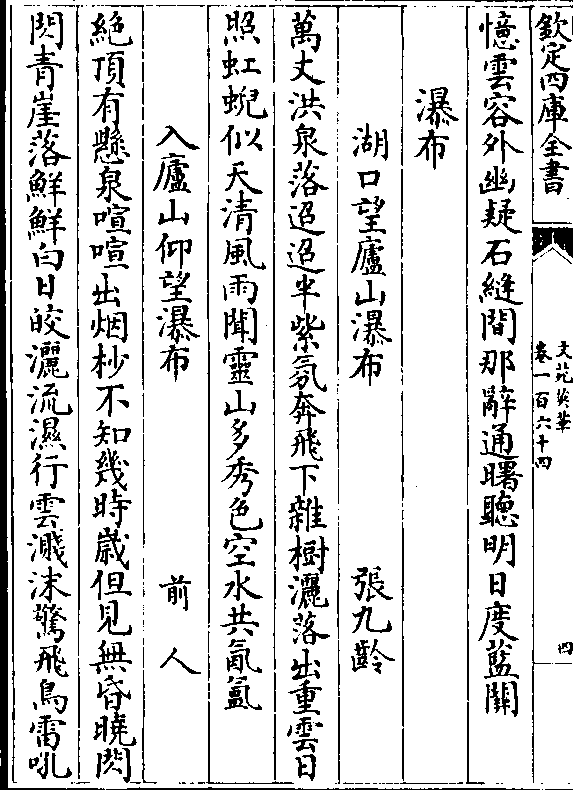 欽定四庫全書
文苑英華
卷一百六十四
四
憶雲容外幽疑石縫間那辭通曙聽明日度藍關
瀑布
湖口望廬山瀑布 張九齡
萬丈洪泉落迢迢半紫氛奔飛下雜樹灑落出重雲日
照虹蜺似天清風雨聞靈山多秀色空水共氤氲
入廬山仰望瀑布 前人
絶頂有懸泉喧喧出烟杪不知幾時歲但見無昏曉閃
閃青崖落鮮鮮白日皎灑流濕行雲濺沫驚飛鳥雷吼